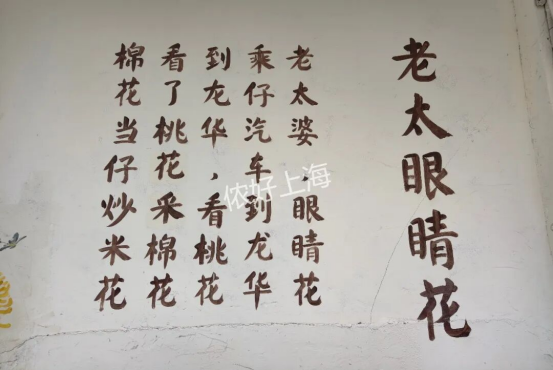 老太眼睛花
老太婆，眼睛花
乘仔汽车到龙华
到龙华，看桃花
看了桃花采棉花
棉花当仔炒米花
侬好上海